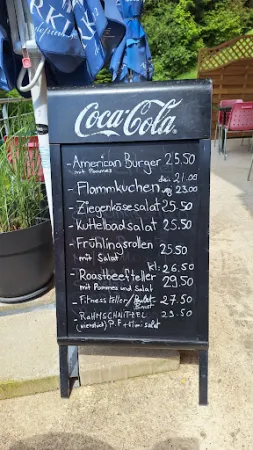 Coca-Cola
- American Burger 25.50
mit Pommes
- Flammkuchen 23.00
- Ziegenkäsesalat 25.50
- Kuttelbadsalat 25.50
- Frühlingsrollen 25.50
mit Salat
kl: 26.50
- Roastbeefteller 29.50
mit Pommes und Salat
- Fitnessteller / 27.50
- RAHMSCHNITZEL 23.50
P.F + Mini salat